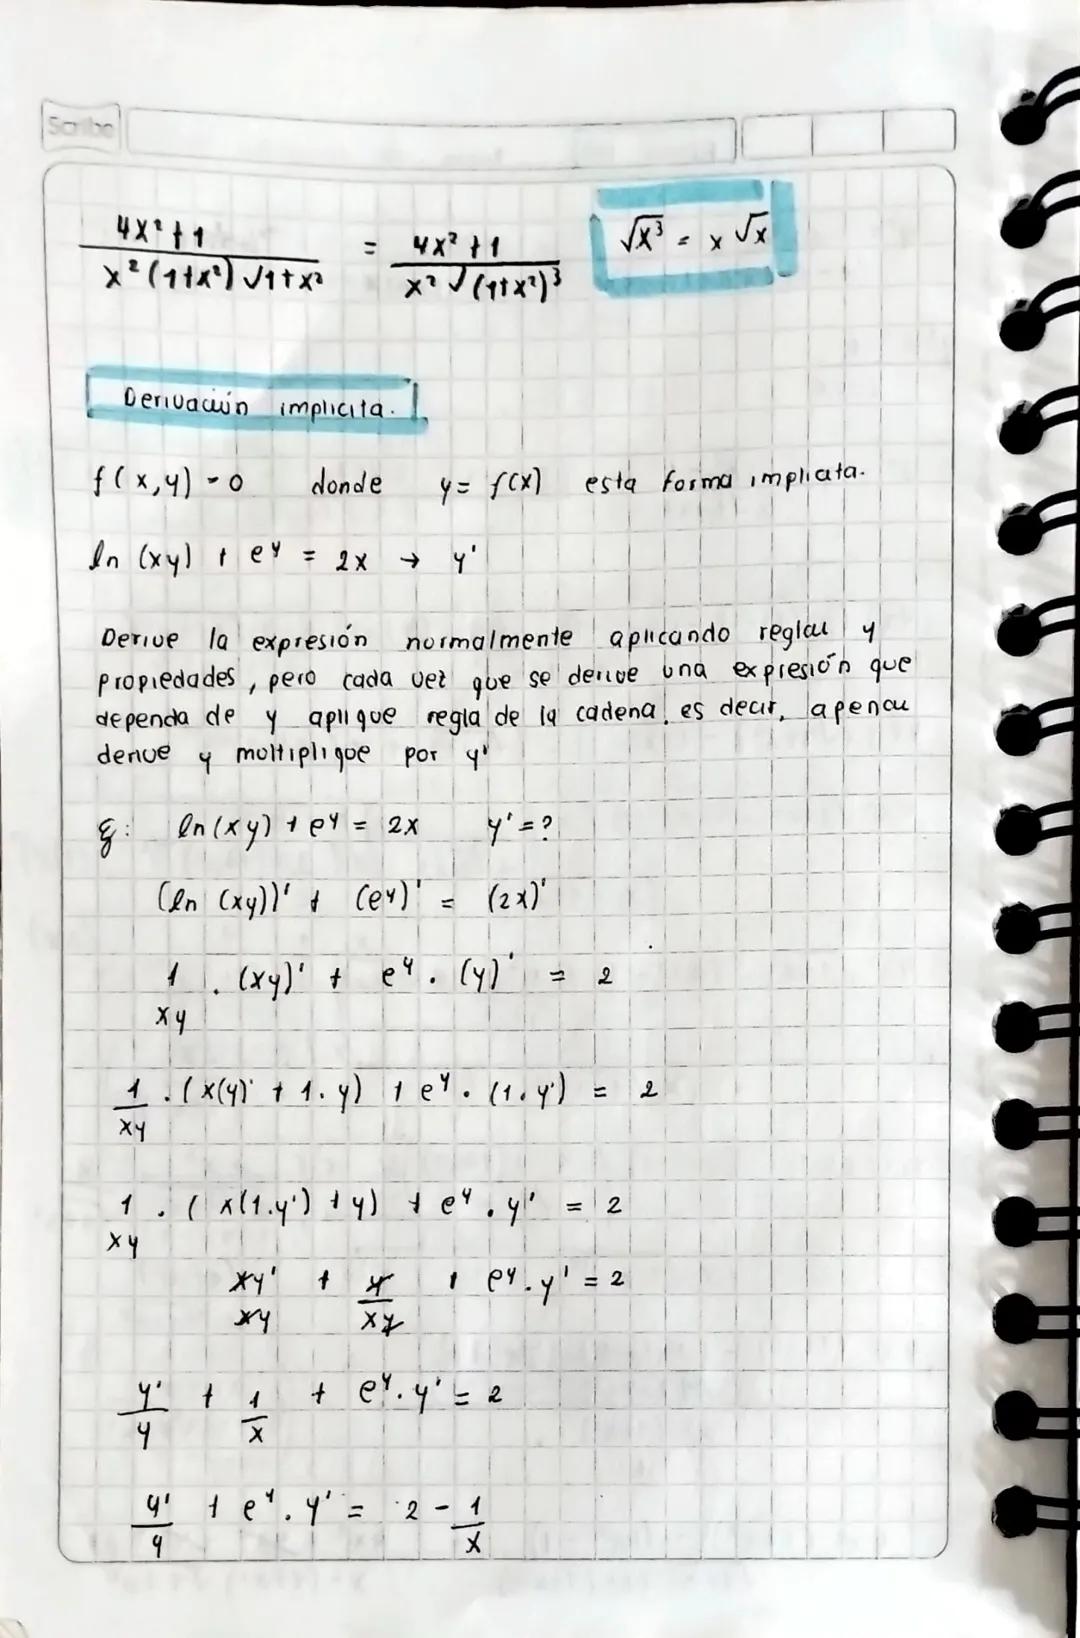 Scribe
4x² + 1 / x² (1+x²) √1+x² = 4x² + 1 / x² √(1+x²)³ √x³ = x √x
Derivación implicita.
f(x,y) = 0 donde y = f(x) esta forma implicata.
ln (xy) + e^y = 2x → y'
Derive la expresión normalmente aplicando reglas y
propiedades, pero cada vez que se derive una expresión que
dependa de y aplique regla de la cadena, es decir, apenas
derive y moltiplique por y'
Ej: ln(xy) + e^y = 2x y' = ?
(ln (xy))' + (e^y)' = (2x)'
1/xy . (xy)' + e^y . (y)' = 2
1/xy . (x(y)' + 1. y) + e^y . (1. y') = 2
1/xy . ( x(1.y') + y) + e^y . y' = 2
xy'/xy + y/xy + e^y . y' = 2
y'/y + 1/x + e^y . y' = 2
y'/y + e^y . y' = 2 - 1/x